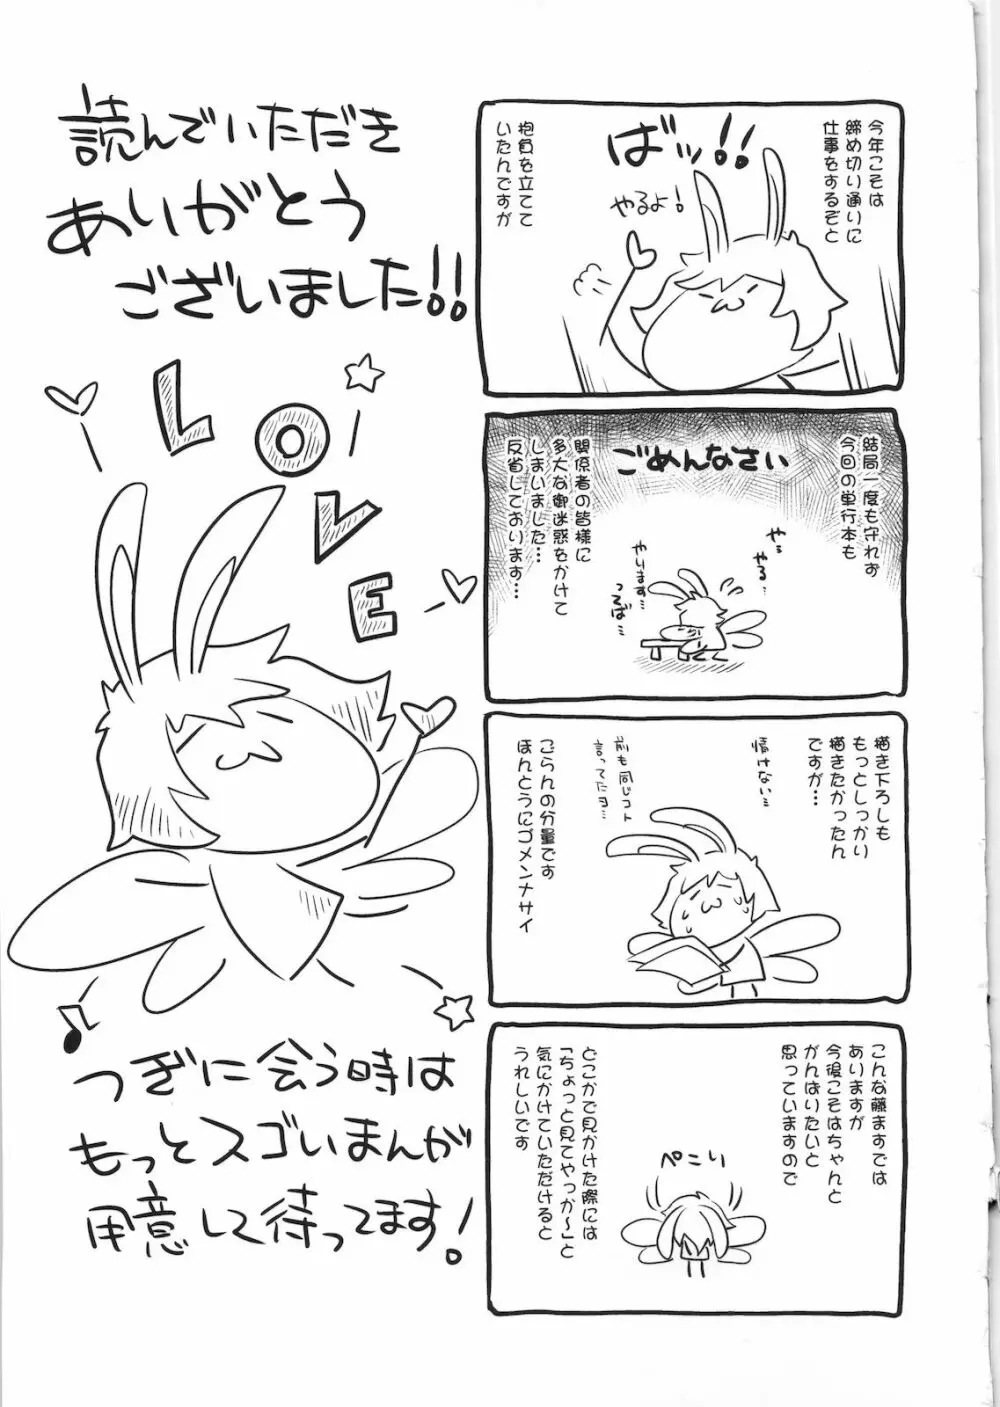 今年こそは
締め切り通りに
仕事をするぞと
ばッ!!
やるよ!
抱負を立てて
いたんですが
結局一度も守れず
今回の単行本も
ごめんなさい
関係者の皆様に
多大な御迷惑をかけて
しまいました…
反省しております…
やっ
やる…
やります…
描き下ろしも
もっとしっかり
描きたかったん
ですが…
情けない…
前も同じコト
言ってたヨ…
ごらんの分量です
ほんとうにゴメンナサイ
こんな藤ますでは
ありますが
今後こそはちゃんと
がんばりたいと
思っていますので
ぺこり
どこかで見かけた際には
「ちょっと見てやっか~」と
気にかけていただけると
うれしいです
読んでいただき
ありがとう
ございました!!
LOVE
つぎに会う時は
もっとスゴいまんが
用意して待ってます!